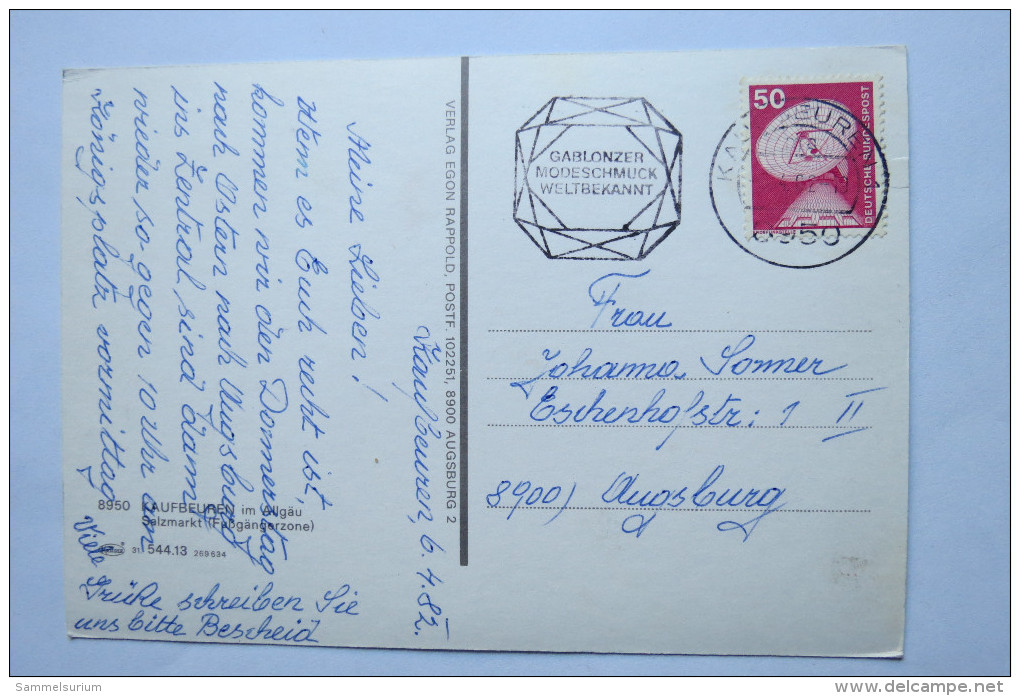 Kaufbeuren, 6.4.82.
Meine Lieben!
Wem es Euch recht ist,
kommen wir den Dommerstag
nach Ostern nach Augsburg
ins Zentral sind dann
wieder so gegen 10 Uhr am
Königsplatz vormittag
Viele
Grüße schreiben Sie
uns bitte Bescheid
8950 KAUFBEUREN im Allgäu
Salzmarkt (Fußgängerzone)
31 544.13 269634
VERLAG EGON RAPPOLD, POSTF. 102251, 8900 AUGSBURG 2
GABLONZER
MODESCHMUCK
WELTBEKANNT
50
DEUTSCHE BUNDESPOST
8950
Frau
Johanna Sommer
Eschenhofstr: 1 II
8900) Augsburg
Sammelsurium
www.delcampe.net